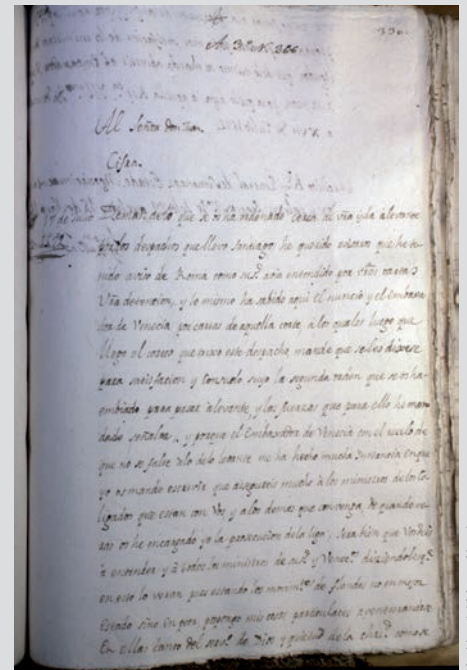 Al Señor Don Juan.
Cifra.
de Julio Demas de lo que se os ha ordenado cerca de vra yda a levante
por los despachos que llevo Santiago, he querido avisaros que he te-
nido aviso de Roma como su sd. avia entendido por vras cartas
vra detencion, y lo mismo ha sabido aqui el nuncio y el Embaxa
dor de Venecia por cartas de aquella corte, a los quales luego que
llego el correo que traxo este despacho, mandé que se les dixese
para satisfacion y consuelo suyo la segunda orden que se os ha
embiado para pasar a levante, y las fuerzas que para ello he man
dado señalar, y porque el Embaxador de Venecia con el recelo de
que no se falte a lo de levante me ha hecho mucha instancia en que
yo os mande escrivir que asegureis mucho a los ministros de los Co-
ligados que estan con Vos y a los demas que convenga, de quan de ve-
ras os he encargado yo la prosecucion de la liga, sera bien que vos lo deis
a entender y a todos los ministros de su sd. y Venecs. diziendoles q.
en esto lo veran, pues estando los movimtos. de flandes no en mejor
Estado sino en peor, pospongo mis cosas particulares
del servo. de Dios y quietud de la chrisd. como se